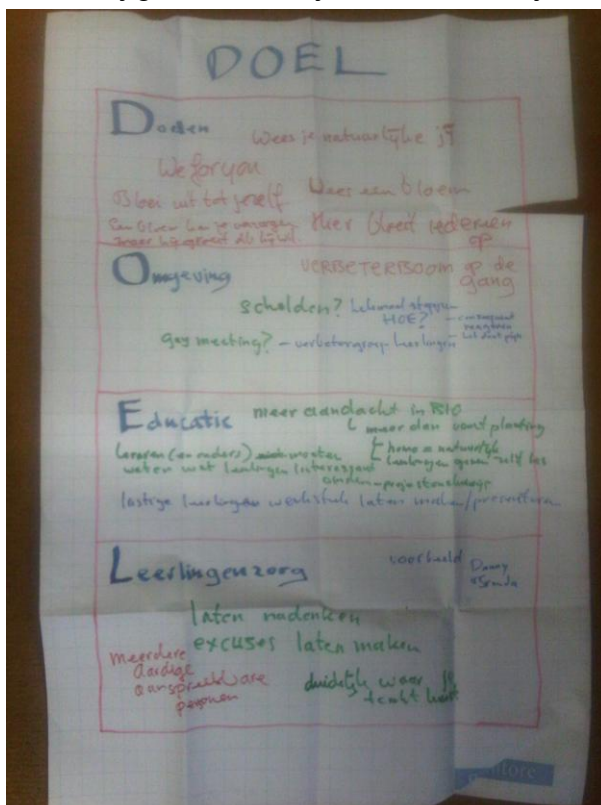 DOEL
Doelen
Wees je natuurlijke jij
We for you
Bloei uit tot jezelf
Wees een bloem
Een bloem kan je verzorgen
Hier bloeit iedereen
op
Omgeving
VERBETERBOOM op de
gang
schelden? helemaal stoppen
HOE? - consequent
reageren
- het doet pijn
gay meeting? - verbetergroep leerlingen
Educatie
meer aandacht in BIO
meer dan voortplanting
home = natuurlijk
Leraren (en ouders) moeten
leerlingen geven zelf les
weten wat leerlingen interessant
vinden - projectonderwijs
lastige leerlingen werkstuk laten maken/presenteren
Leerlingenzorg
voorbeeld
laten nadenken
excuses laten maken
meerdere
aardige
aanspreekbare
personen
duidelijk waar jij
terecht kunt